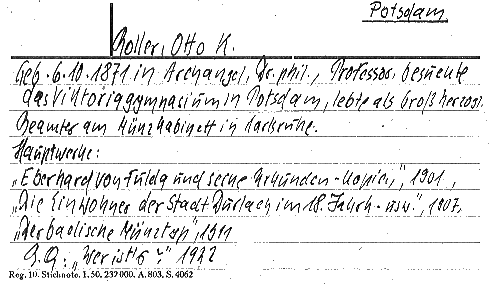 Potsdam
Roller, Otto K.
Geb. 6.10.1871 in Archangel, Dr. phil., Professor, besuchte
das Viktoriagymnasium in Potsdam, lebte als Großherzogl.
Beamter am Münzkabinett in Karlsruhe.
Hauptwerke:
„Eberhard von Fulda und seine Urkunden-Kopien", 1901,
„Die Einwohner der Stadt Durlach im 18. Jahrh. usw.", 1907,
„Der badische Münztyp", 1911
„Wer ist's?" 1922
Reg. 10. Stichnote. 1. 50. 232000. A. 803. S. 4062